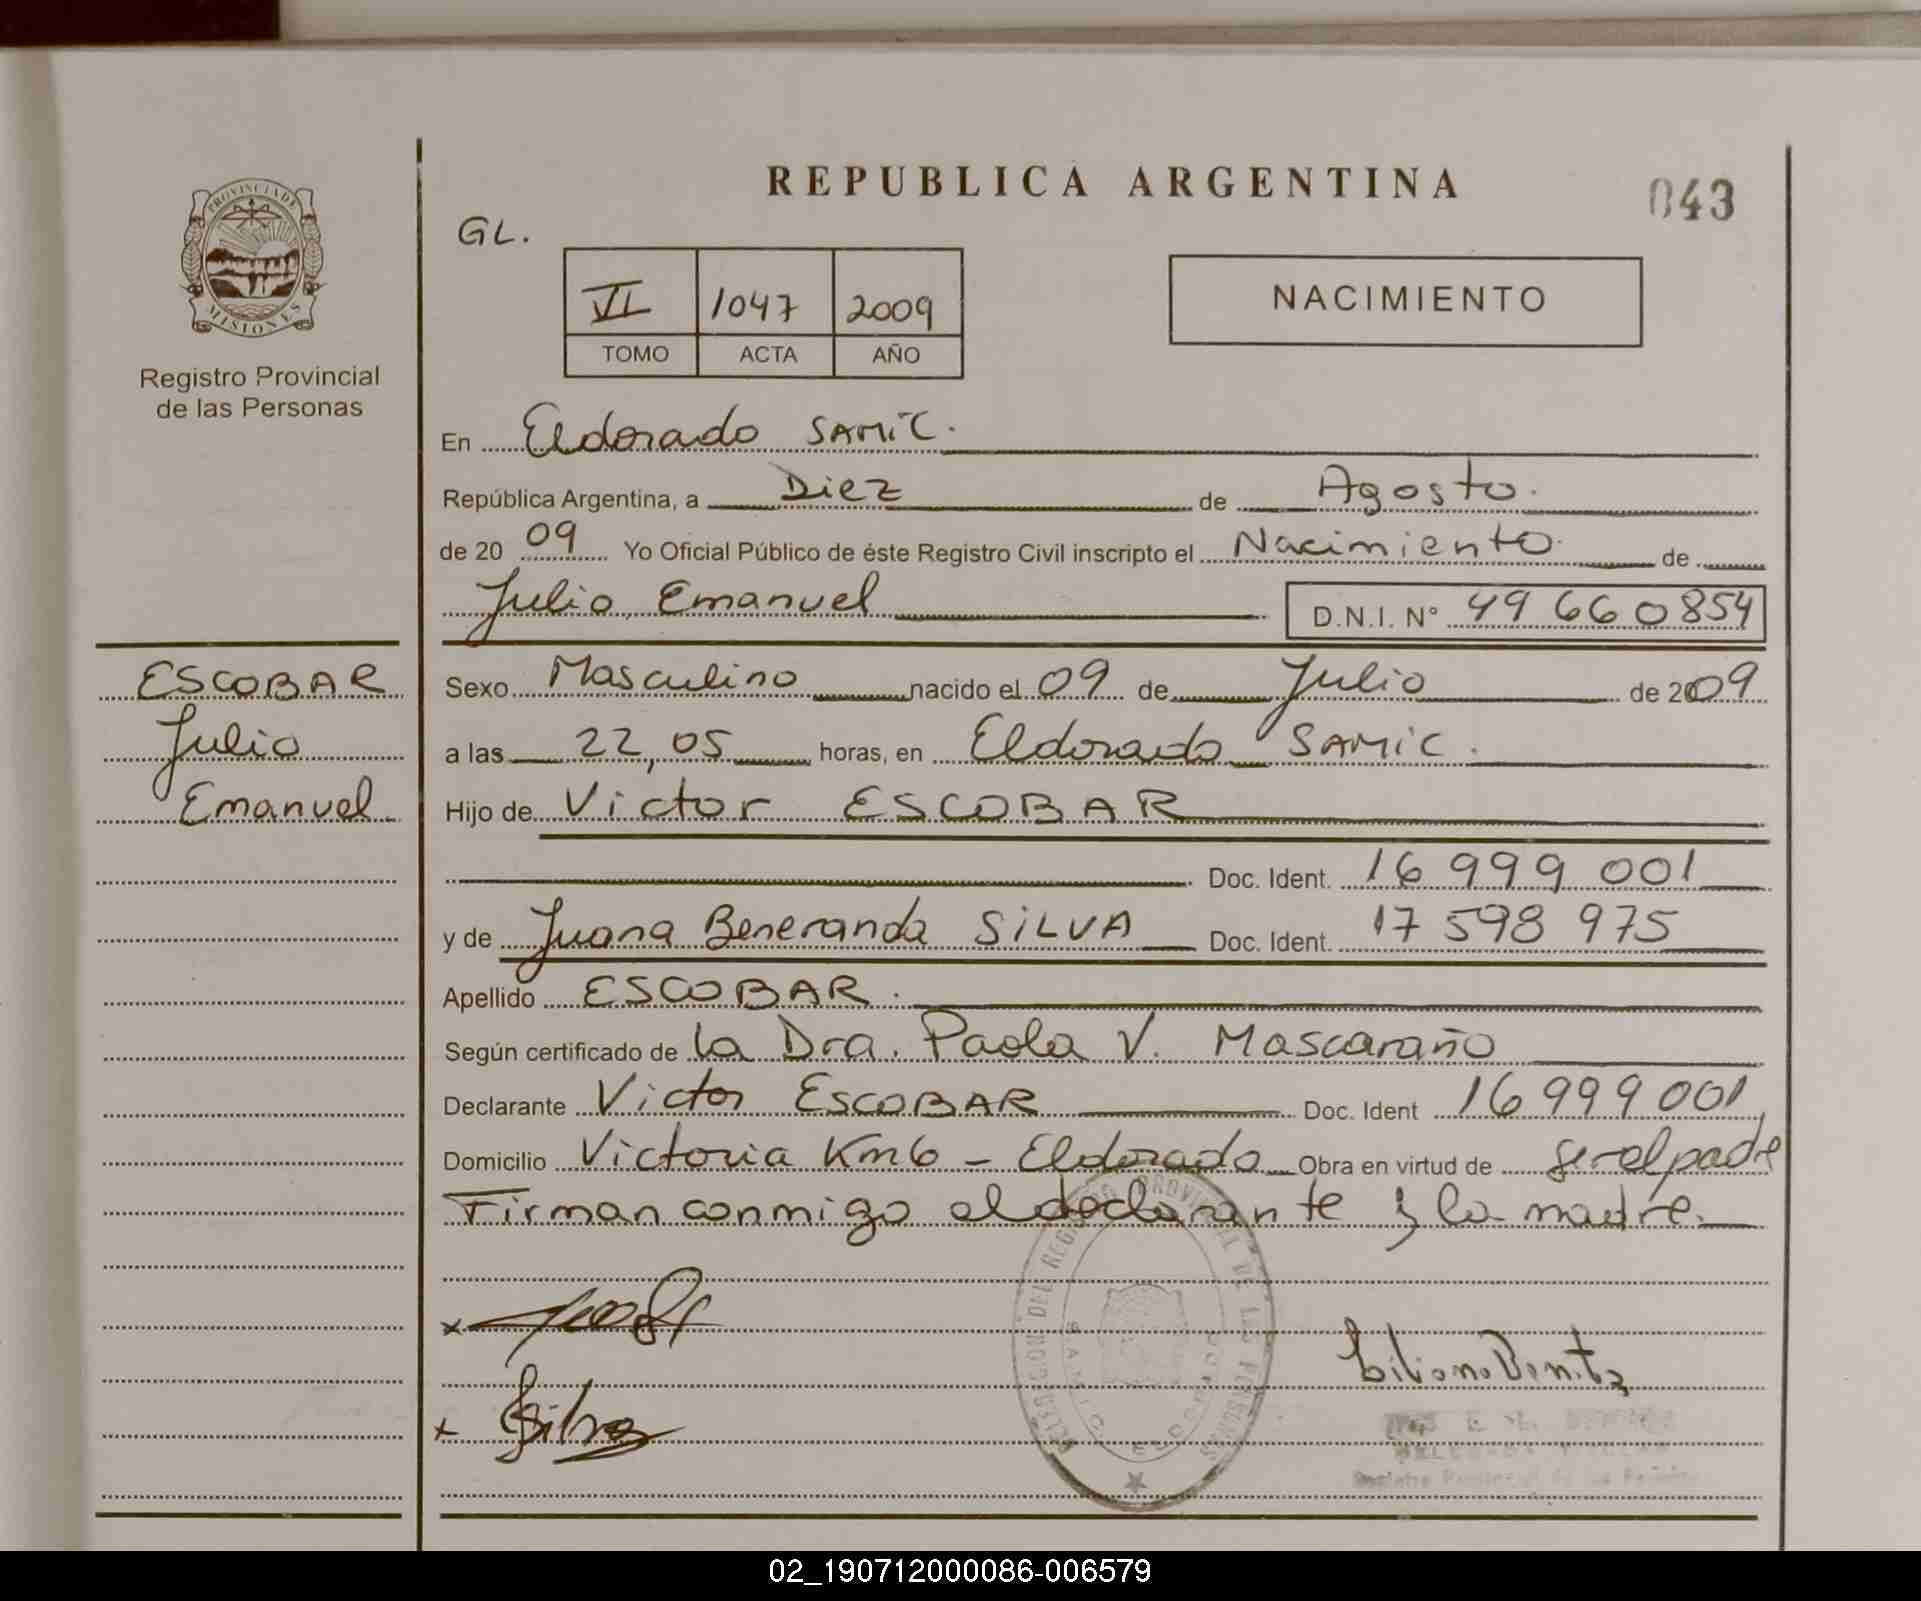 REPUBLICA ARGENTINA
043
GL.
PROVINCIA DE
MISIONES
Registro Provincial
de las Personas
VI 1047 2009
TOMO ACTA AÑO
NACIMIENTO
En Eldorado SAMIC.
República Argentina, a Diez de Agosto.
de 20 09 Yo Oficial Público de éste Registro Civil inscripto el Nacimiento de
Julio Emanuel D.N.I. N° 49 660 854
ESCOBAR
Julio
Emanuel
Sexo Masculino nacido el 09 de Julio de 2009
a las 22,05 horas, en Eldorado SAMIC.
Hijo de Victor ESCOBAR
Doc. Ident. 16 999 001
y de Juana Beneranda SILVA Doc. Ident. 17 598 975
Apellido ESCOBAR.
Según certificado de la Dra. Paola V. Mascaraño
Declarante Victor ESCOBAR Doc. Ident 16 999 001
Domicilio Victoria Km6 - Eldorado Obra en virtud de ser el padre
Firman conmigo el declarante y la madre.
DELEGACION DEL REGISTRO PROVINCIAL DE LAS PERSONAS
S.A.M.I.C. ELDORADO
x
x Silva
Liliana Benitez
02_190712000086-006579